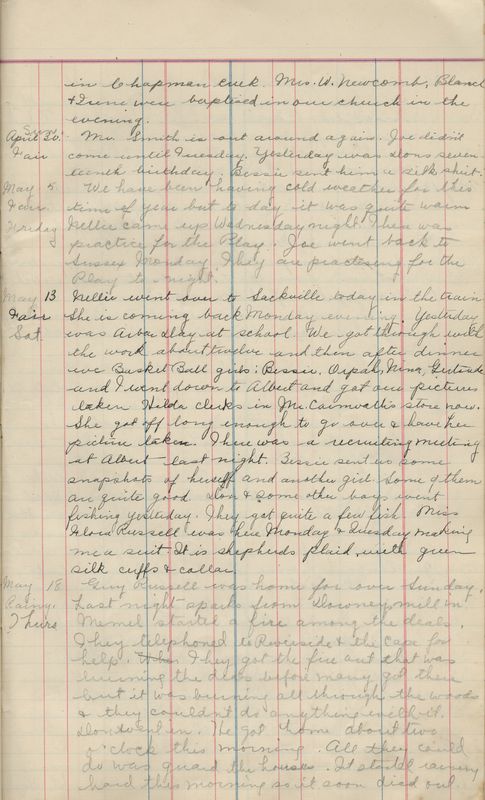 in Chapman cuck. Mrs. W. Newcomb, Blanch
& June were baptised in our church in the
evening.
April 30. Mr. Smith is out around again. Joe didn't
Fair come until Tuesday. Yesterday was Dons seven-
teenth birthday. Bessie sent him a silk shirt.
May 5 We have been having cold weather for this
Fair time of year but to day it was quite warm
Friday Nellie came up Wednesday night. There was
practice for the Play. Joe went back to
Sussex Monday. They are practising for the
Play to-night.
May 13 Nellie went over to Sackville today in the train
Fair She is coming back Monday evening. Yesterday
Sat. was Arbor day at school. We got through with
the work about twelve and then after dinner
we Basket Ball girls: Bessie, Orpah, Nina, Gertrude
and I went down to Albert and got our pictures
taken Hilda clerks in Mr. store now.
She got off long enough to go over & have her
picture taken. There was a recruiting meeting
at Albert last night. Bessie sent us some
snapshots of herself and another girl. Some of them
are quite good Don & some other boys went
fishing yesterday. They got quite a few fish Miss
Russell was here Monday & Tuesday making
me a suit It is shepherds plaid with green
silk cuffs & collar.
May 18 Guy Russell was home for over Sunday.
Rainy. Last night sparks from Downey mill in
Thurs Memel started a fire among the deals.
They telephoned to Riverside & the Cape for
help. They got the fire out that was
burning the deals before many got there
but it was burning all through the woods
& they couldn't do anything with it.
Don went in. He got home about two
o'clock this morning. All they could
do was guard the houses. It started raining
hard this morning so it soon died out.